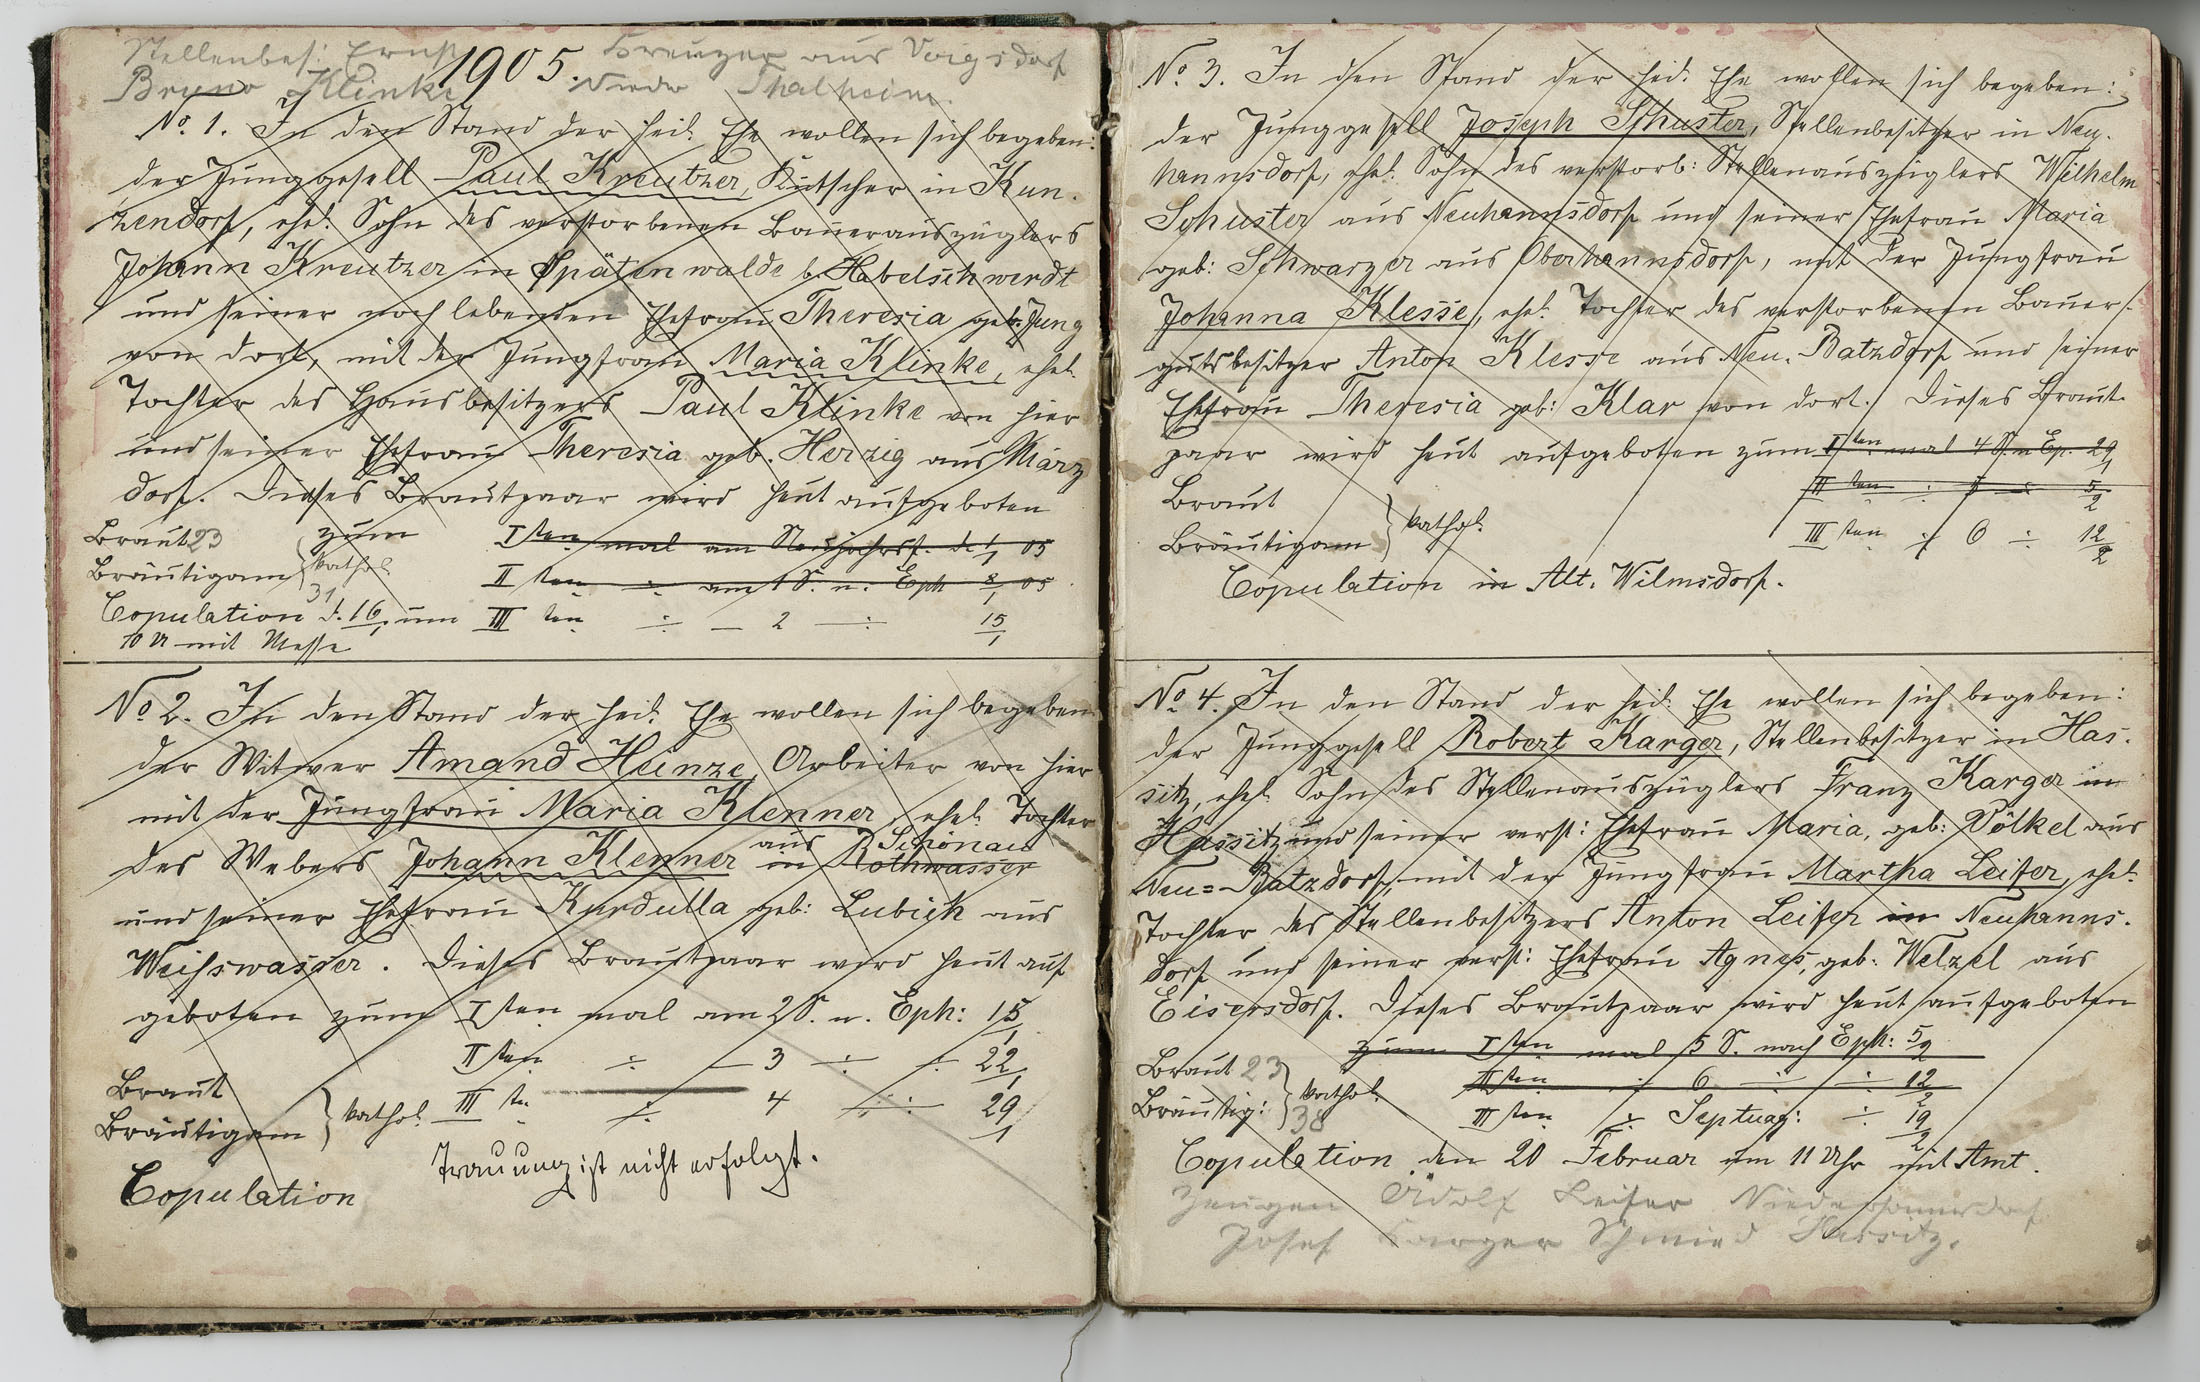 Stellenbes: Ernst Kreuzer aus Voigsdorf
1905.
Bruno Klinke Nieder Thalheim.
No. 1. In den Stand der heil. Ehe wollen sich begeben:
der Junggesell Paul Kreutzer, Kutscher in Kun-
zendorf, ehel. Sohn des verstorbenen Bauerauszüglers
Johann Kreutzer in Spätenwalde b. Habelschwerdt
und seiner noch lebenden Ehefrau Theresia geb. Jung
von dort, mit der Jungfrau Maria Klinke, ehel.
Tochter des Hausbesitzers Paul Klinke von hier
und seiner Ehefrau Theresia geb. Herzig aus März
dorf. Dieses Brautpaar wird heut aufgeboten
Braut 23 zum Iten mal am Neujahrsf. d. 1/1 05
Bräutigam 31 kathol. II ten ÷ am 1 S. n. Eph 8/1 05
Copulation d. 16/1. um III ten ÷ — 2 — ÷ 15/1
10 U mit Messe
No 2. In den Stand der heil. Ehe wollen sich begeben
der Witwer Amand Heinze, Arbeiter von hier
mit der Jungfrau Maria Klenner, ehel. Tochter
des Webers Johann Klenner in Rothwasser aus Schönau
und seiner Ehefrau Kurdulla geb: Lubich aus
Weihswasser. Dieses Brautpaar wird heut auf
geboten zum Iten mal am 2 S. n. Eph: 15/1
II ten ÷ — 3 ÷ ÷ 22/1
Braut
Bräutigam } kathol. III te. ÷ 4 ÷ 29/1
Trauung ist nicht erfolgt.
Copulation
No 3. In den Stand der heil. Ehe wollen sich begeben:
der Junggesell Joseph Schuster, Stellenbesitzer in Neu-
hannsdorf, ehel. Sohn des verstorb: Stellenauszüglers Wilhelm
Schuster aus Neuhannsdorf und seiner Ehefrau Maria
geb: Schwarzer aus Oberhannsdorf, mit der Jungfrau
Johanna Klesse, ehel. Tochter des verstorbenen Bauer-
gutsbesitzer Anton Klesse aus Neu-Batzdorf und seiner
Ehefrau Theresia geb: Klar von dort. Dieses Braut-
paar wird heut aufgeboten zum Iten mal 4 S. n. Ep. 29/1
Braut II ten ÷ 5 ÷ 5/2
Bräutigam } kathol. III ten ÷ 6 ÷ 12/2
Copulation in Alt-Wilmsdorf.
No 4. In den Stand der heil. Ehe wollen sich begeben:
der Junggesell Robert Karger, Stellenbesitzer in Has-
sitz, ehel. Sohn des Stellenauszüglers Franz Karger in
Hassitz und seiner verst: Ehefrau Maria, geb: Völkel aus
Neu=Batzdorf, mit der Jungfrau Martha Leifer, ehel.
Tochter des Stellenbesitzers Anton Leifer in Neuhanns-
dorf und seiner verst: Ehefrau Agnes, geb. Welzel aus
Eisersdorf. Dieses Brautpaar wird heut aufgeboten
zum Iten mal 5 S. nach Eph: 5/2
Braut 23 II ten ÷ 6 ÷ ÷ 12/2
Bräutig: 38 } kathol. III ten ÷ Septuag: ÷ 19/2
Copulation den 20 Februar um 11 Uhr mit Amt.
Zeugen Adolf Leifer Niederhannsdorf
Josef Karger Schmied Hassitz.